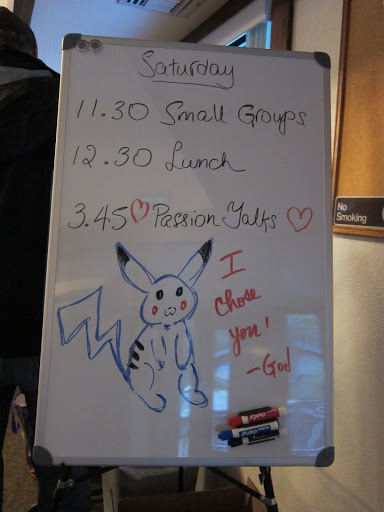 Saturday
11.30 Small Groups
12.30 Lunch
3.45 Passion Talks
I
chose
you!
-God
No
Smoking
EXPO